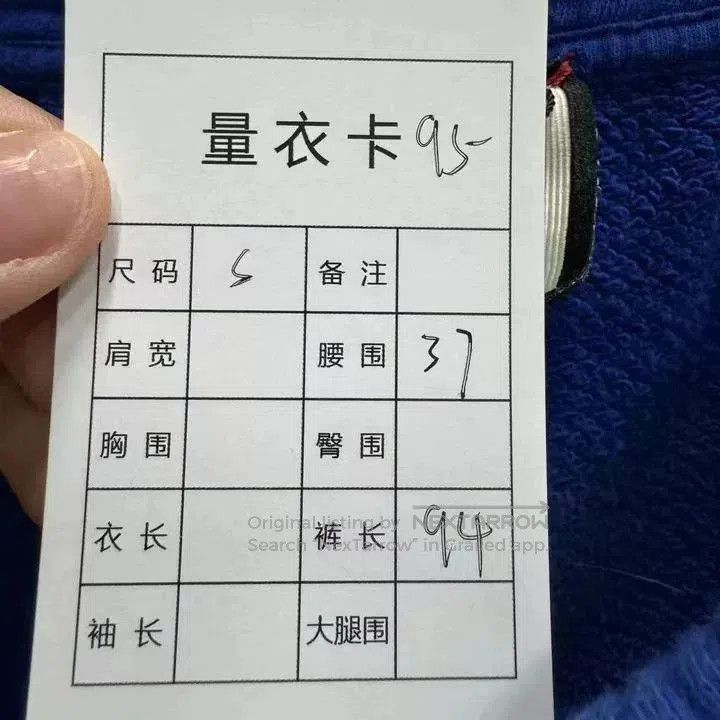 量衣卡 95
尺码 S 备注
肩宽 腰围 37
胸围 臀围
衣长 裤长 94
袖长 大腿围
Original listing by NEXTARROW
Search "NexTarrow" in Grailed app.